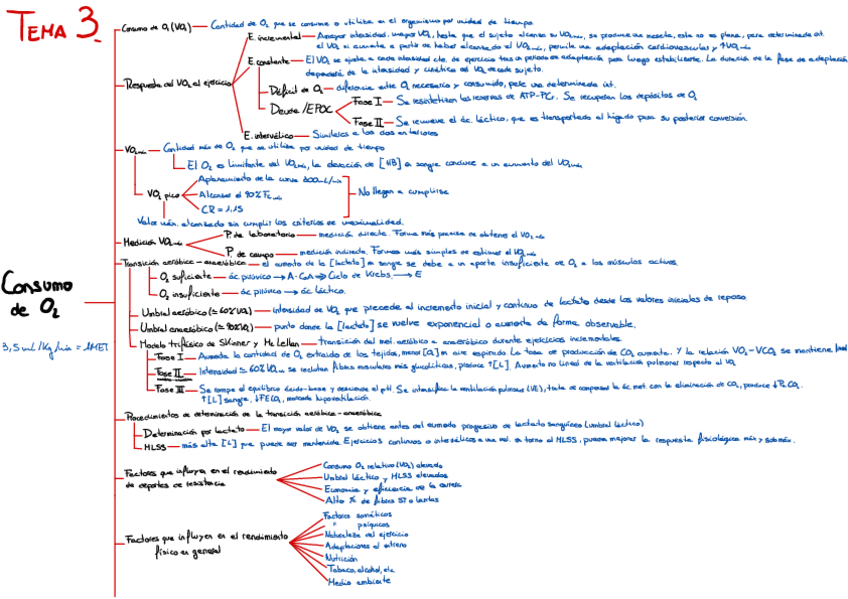 TEMA 3.
Consumo de O₂
3,5 ml/Kg/min = 1MET
Consumo de O₂ (VO₂) — Cantidad de O₂ que se consume o utiliza en el organismo por unidad de tiempo
Respuesta del VO₂ al ejercicio
E. incremental — A mayor intensidad, mayor VO₂, hasta que el sujeto alcanza su VO₂máx, se produce una meseta, esta no es plana, pero determinada int.
el VO₂ si aumenta a partir de haber alcanzado el VO₂máx, permite una adaptación cardiovascular y ↑VO₂máx
E. constante — El VO₂ se ajusta a cada intensidad cte. de ejercicio tras un periodo de adaptación para luego estabilizarse. La duración de la fase de adaptación
dependerá de la intensidad y cinética del VO₂ de cada sujeto.
Déficit de O₂ — diferencia entre O₂ necesario y consumido, para una determinada int.
Deuda /EPOC
Fase I — Se resintetizan las reservas de ATP-PCr. Se recuperan los depósitos de O₂
Fase II — Se remueve el ác. láctico, que es transportado al hígado para su posterior conversión.
E. interválico — Similares a los dos anteriores
VO₂máx — Cantidad máx de O₂ que se utiliza por unidad de tiempo
El O₂ es limitante del VO₂máx, la elevación de [HB] en sangre conduce a un aumento del VO₂máx
VO₂ pico
Aplanamiento de la curva 200mL/min
Alcanzar el 90% Fc máx
CR = 1,15
No llegan a cumplirse
Valor máx. alcanzado sin cumplir los criterios de maximalidad.
Medición VO₂máx
P. de laboratorio — medición directa. Forma más precisa de obtener el VO₂máx
P. de campo — medición indirecta. Formas más simples de estimar el VO₂máx
Transición aeróbica - anaeróbica — el aumento de la [lactato] en sangre se debe a un aporte insuficiente de O₂ a los músculos activos
O₂ suficiente — ác pirúvico → A-CoA → Ciclo de Krebs → E
O₂ insuficiente — ác pirúvico → ác láctico.
Umbral aeróbico (≃ 60% VO₂) — intensidad de VO₂ que precede al incremento inicial y continuo de lactato desde los valores iniciales de reposo
Umbral anaeróbico (≃ 90% VO₂) — punto donde la [lactato] se vuelve exponencial o aumenta de forma observable.
Modelo trifásico de Skinner y McLellan — transición del met. aeróbico a anaeróbico durante ejercicios incrementales
Fase I — Aumenta la cantidad de O₂ extraído de los tejidos, menor [O₂] en aire espirado. La tasa de producción de CO₂ aumenta. Y la relación VO₂-VCO₂ se mantiene
Fase II — Intensidad ≃ 60% VO₂ se reclutan fibras musculares más glucolíticas, produce ↑[L]. Aumento no lineal de la ventilación pulmonar respecto al VO₂
Fase III — Se rompe el equilibrio ácido-base y desciende el pH. Se intensifica la ventilación pulmonar (VE), trata de compensar la ác met. con la eliminación de CO₂, produce ↓PaCO₂.
↑[L] sangre, ↓FECO₂, marcada hiperventilación.
Procedimientos de determinación de la transición aeróbica-anaeróbica
Determinación por lactato — El mayor valor de VO₂ se obtiene antes del aumento progresivo de lactato sanguíneo (umbral láctico)
HLSS — más alta [L] que puede ser mantenida. Ejercicios continuos o interválicos a una vel. en torno al HLSS, pueden mejorar la respuesta fisiológica máx y submáx.
Factores que influyen en el rendimiento
de deportes de resistencia
Consumo O₂ relativo (VO₂) elevado
Umbral láctico y HLSS elevados
Economía y eficiencia de la carrera
Alto % de fibras ST o lentas
Factores que influyen en el rendimiento
físico en general
Factores somáticos
" psíquicos
Naturaleza del ejercicio
Adaptaciones al entreno
Nutrición
Tabaco, alcohol, etc
Medio ambiente